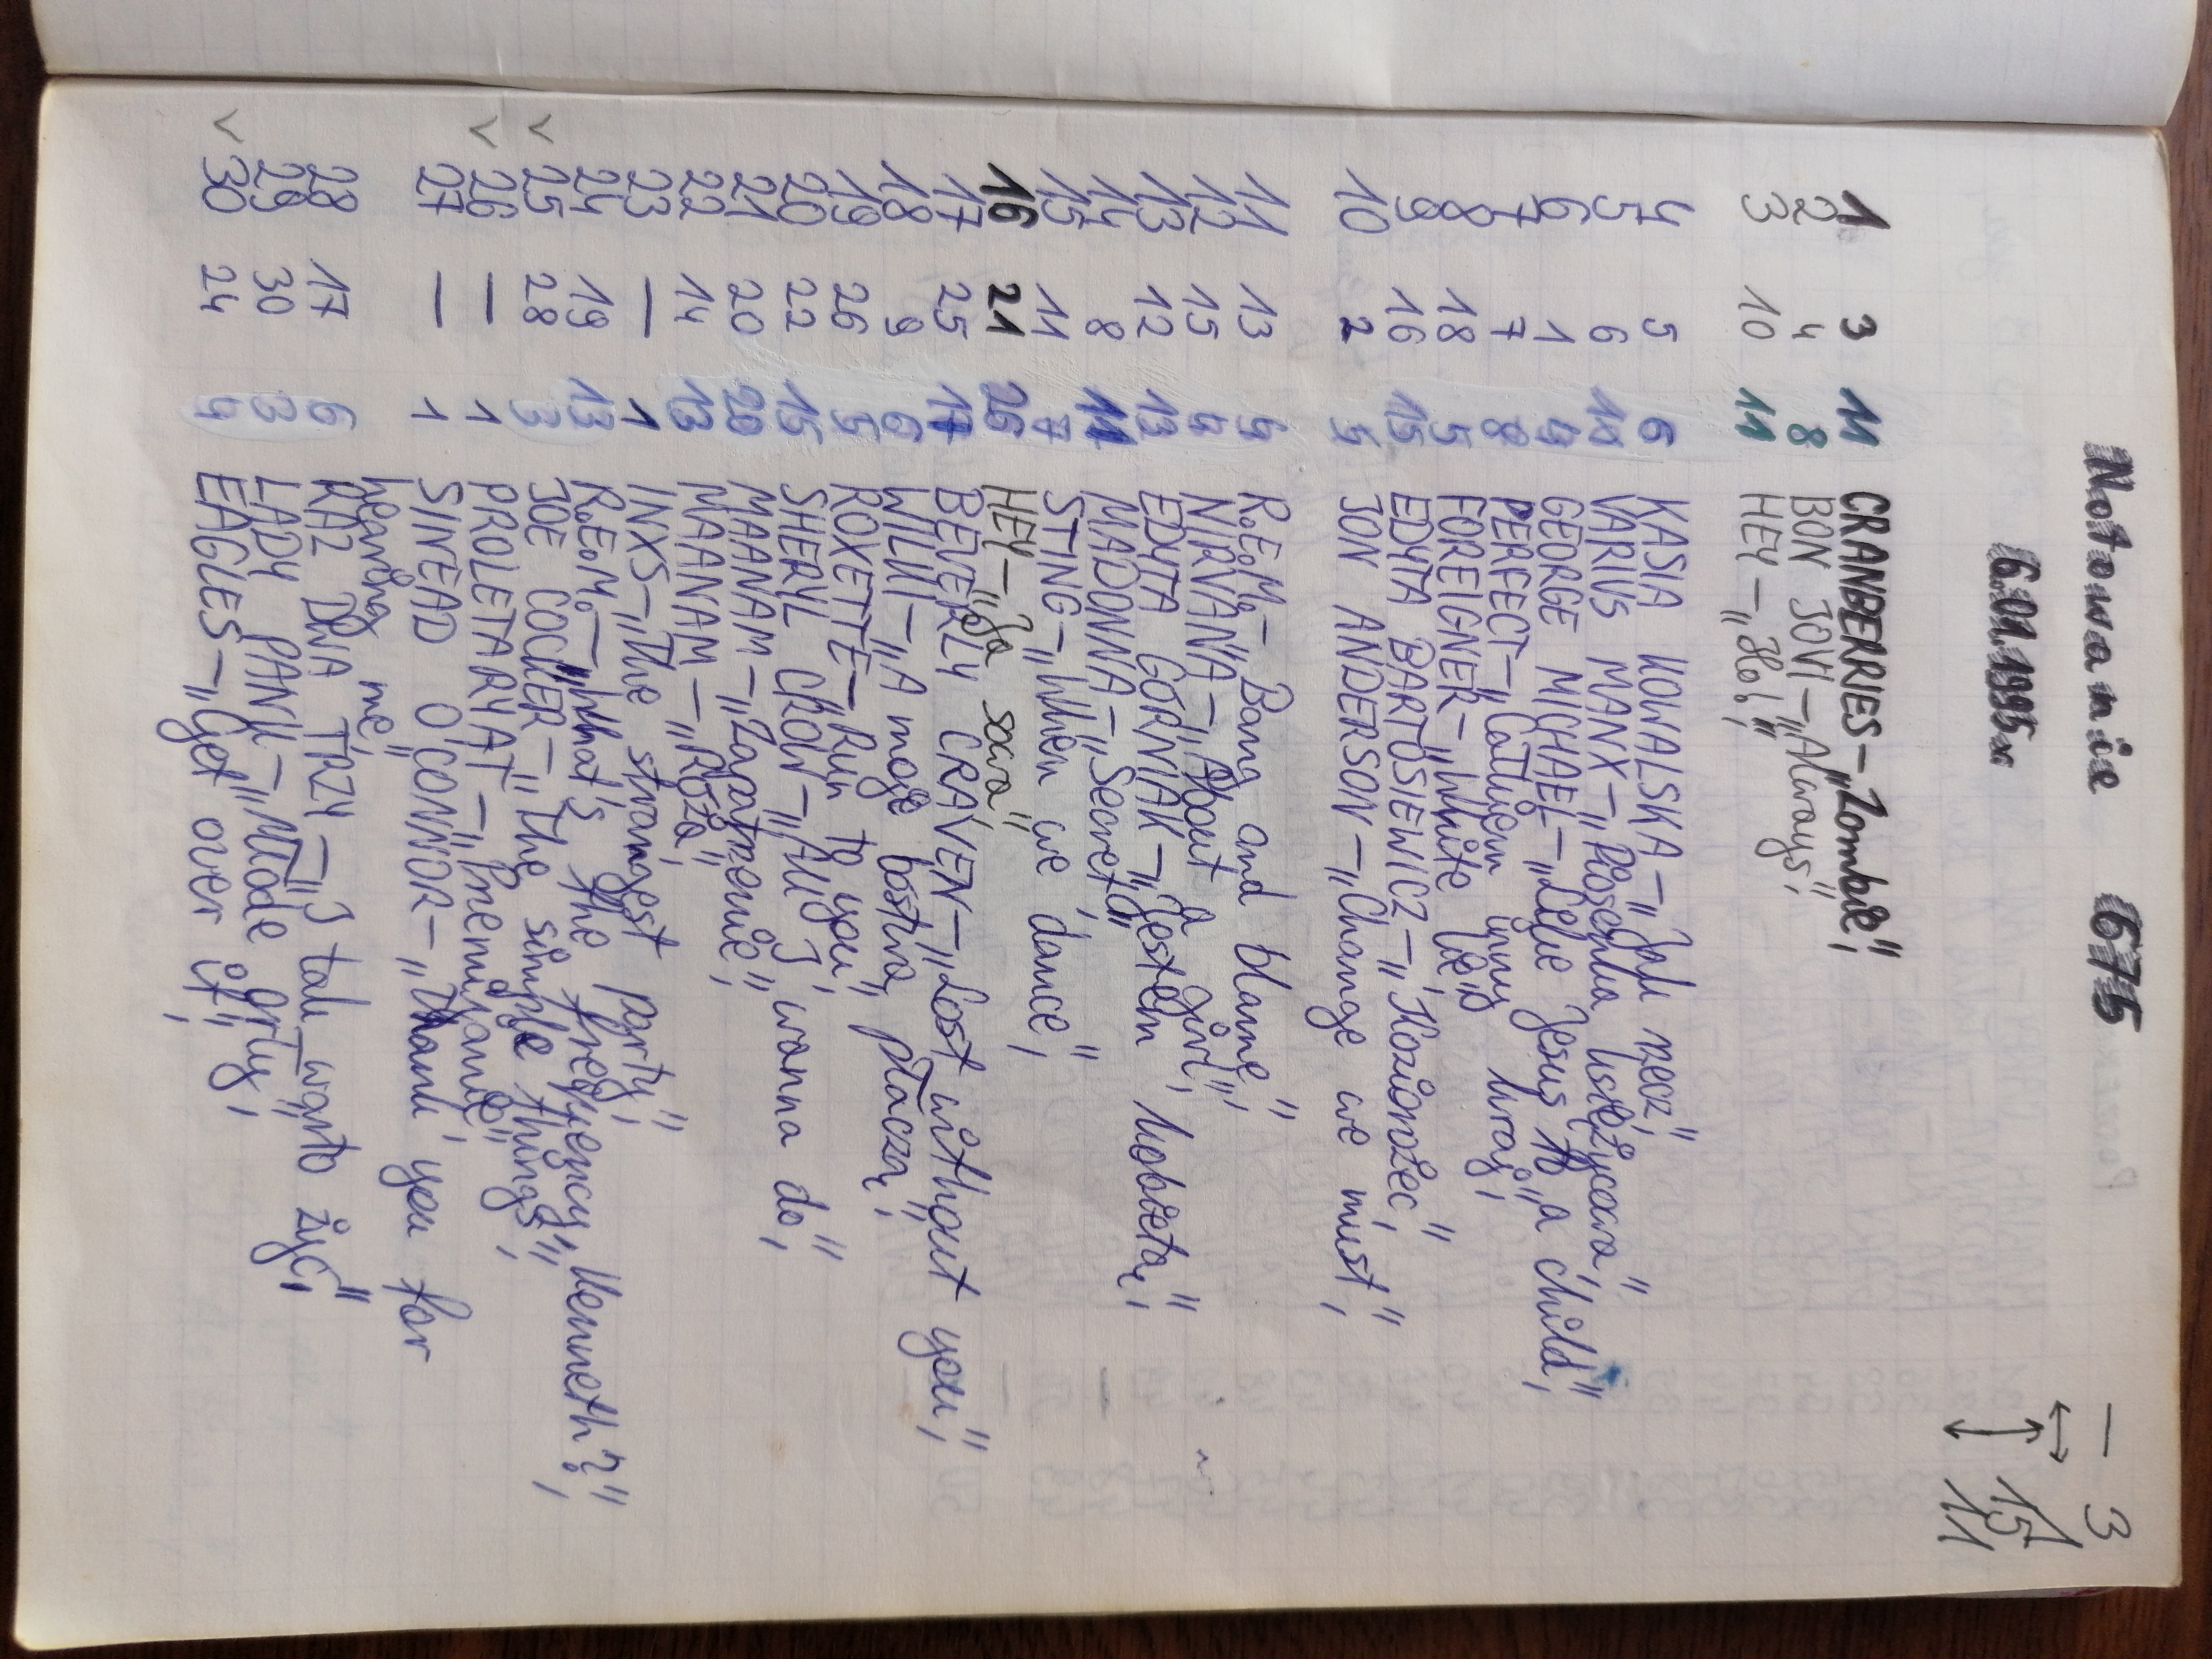 Notowanie 675
6.01.1995r.
— 3
↔ 1
↑ 15
↓ 11
1 3 11 CRANBERRIES – „Zombie",
2 4 8 BON JOVI – „Always",
3 10 11 HEY – „Ho!",
4 5 6 KASIA KOWALSKA – „Jak rzecz",
5 6 10 VARIUS MANX – „Piosenka księżycowa",
6 1 4 GEORGE MICHAEL – „Like Jesus to a child",
7 7 8 PERFECT – „Całkiem inny kraj",
8 18 5 FOREIGNER – „White lie"
9 16 15 EDYTA BARTOSIEWICZ – „Koziorożec",
10 2 5 JON ANDERSON – „Change we must",
11 13 4 R.E.M. – Bang and blame",
12 15 4 NIRVANA – „About a girl",
13 12 13 EDYTA GÓRNIAK – „Jestem kobietą",
14 8 11 MADONNA – „Secret",
15 11 7 STING – „When we dance",
16 21 26 HEY – „Ja sowa",
17 25 17 BEVERLY CRAVEN – „Lost without you",
18 9 6 WILKI – „A moje bóstwa płaczą",
19 26 5 ROXETTE – „Run to you",
20 22 15 SHERYL CROW – „All I wanna do",
21 20 20 MAANAM – „Zapatrzenie",
22 14 13 MAANAM – „Róża",
23 — 1 INXS – „The strangest party",
24 19 13 R.E.M. – „What's the frequency, Kenneth?",
✓ 25 28 3 JOE COCKER – „The simple things",
✓ 26 — 1 PROLETARYAT – „Przemijanie",
27 — 1 SINEAD O'CONNOR – „Thank you for
hearing me",
28 17 6 RAZ DWA TRZY – „I tak warto żyć",
29 30 3 LADY PANK – „Młode orły",
✓ 30 24 4 EAGLES – „Get over it",